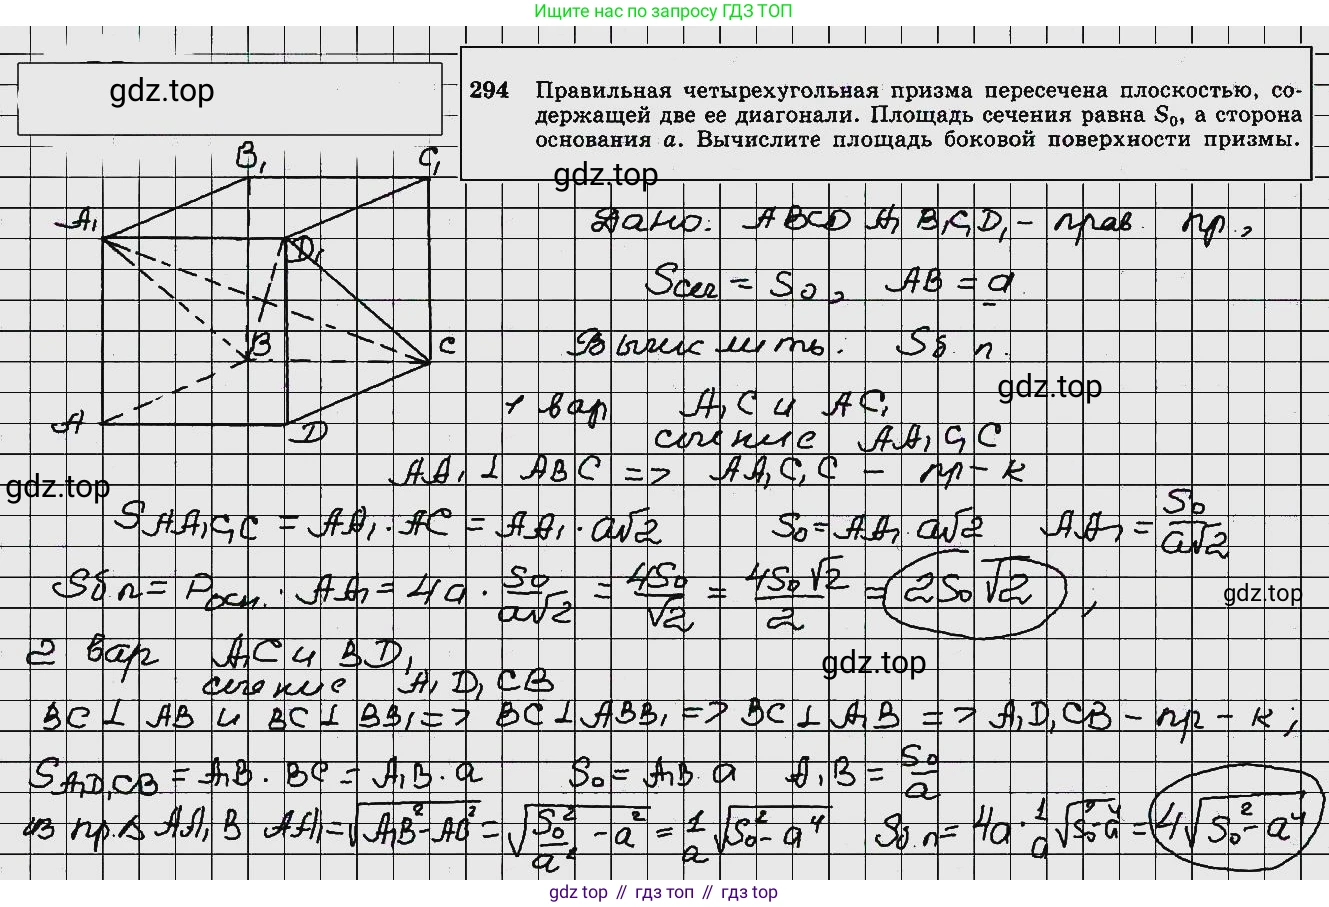 Ищите нас по запросу ГДЗ ТОП
gdz.top
294 Правильная четырехугольная призма пересечена плоскостью, со-
держащей две ее диагонали. Площадь сечения равна S₀, а сторона
основания a. Вычислите площадь боковой поверхности призмы.
gdz.top
B₁
C₁
A₁
D₁
B
C
A
D
Дано: ABCD A₁B₁C₁D₁ – прав. пр,
Sсеч = S₀, AB = a
Вычислить: Sб.п.
gdz.top
1 вар A₁C и AC₁
сечение AA₁C₁C
AA₁ ⊥ ABC => AA₁C₁C – пр-к
gdz.top
S AA₁C₁C = AA₁ · AC = AA₁ · a√2 S₀ = AA₁ · a√2 AA₁ = S₀/a√2
Sб.п = Pосн. · AA₁ = 4a · S₀/a√2 = 4S₀/√2 = 4S₀√2/2 = 2S₀√2 ;
gdz.top
2 вар A₁C и BD₁
gdz.top
сечение A₁D₁CB
BC ⊥ AB и BC ⊥ BB₁ => BC ⊥ ABB₁ => BC ⊥ A₁B => A₁D₁CB – пр-к;
S A₁D₁CB = A₁B · BC = A₁B · a S₀ = A₁B · a A₁B = S₀/a
из пр.Δ AA₁B AA₁ = √A₁B² – AB² = √S₀²/a² – a² = 1/a √S₀² – a⁴ Sб.п = 4a · 1/a √S₀² – a⁴ = 4√S₀² – a⁴
gdz top // гдз топ // гдз top